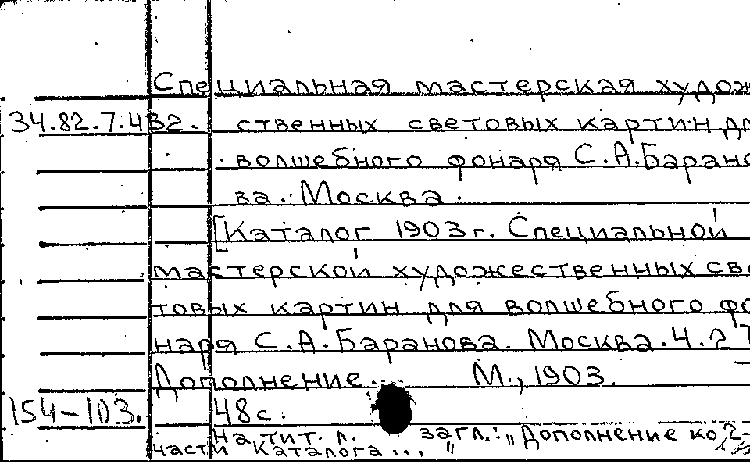 Специальная мастерская худож
34.82.7.432. ственных световых картин дл
волшебного фонаря С.А.Барано
ва. Москва.
[Каталог 1903 г. Специальной
мастерской художественных све
товых картин для волшебного фо
наря С.А.Баранова. Москва. Ч. 2
Дополнение... М., 1903.
154-103. 48 с.
на тит. л. загл.: "Дополнение ко 2-
части каталога..."